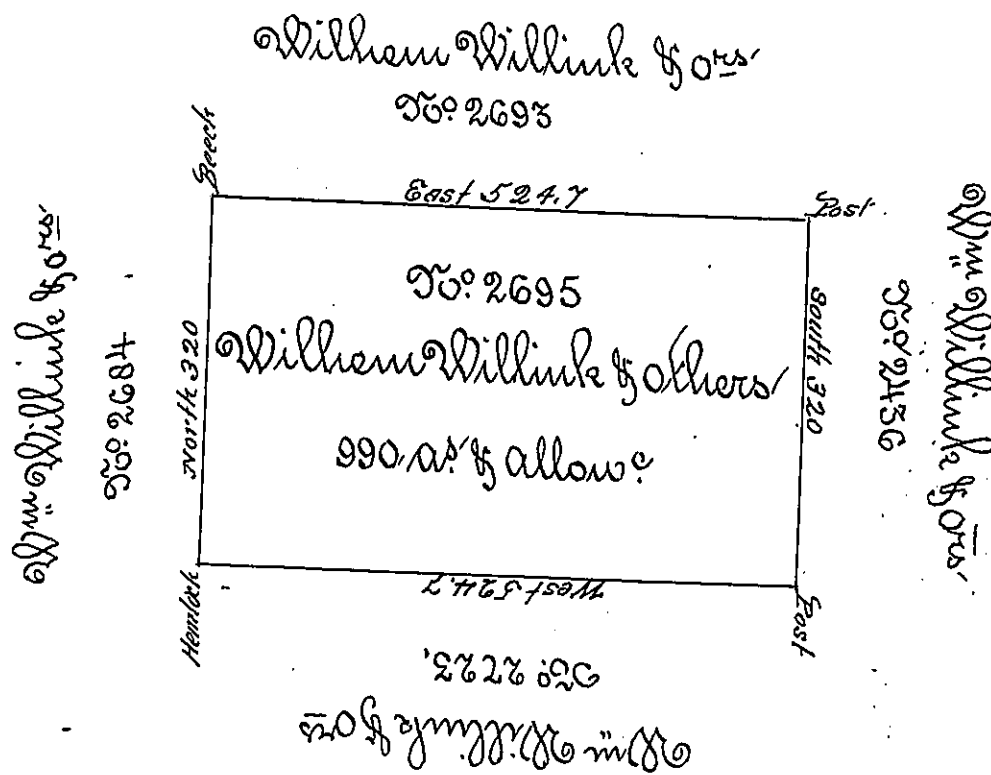 Wilhem Willink & ors
No. 2693
Beech
East 524.7
Post
Wm Willink & ors
No. 2684
North 320
No. 2695
Wilhem Willink & others
990 as & allowe.
South 320
No. 2436
Wm Willink & ors
Hemlock
West 524.7
Post
No. 2723.
Wm Willink & ors